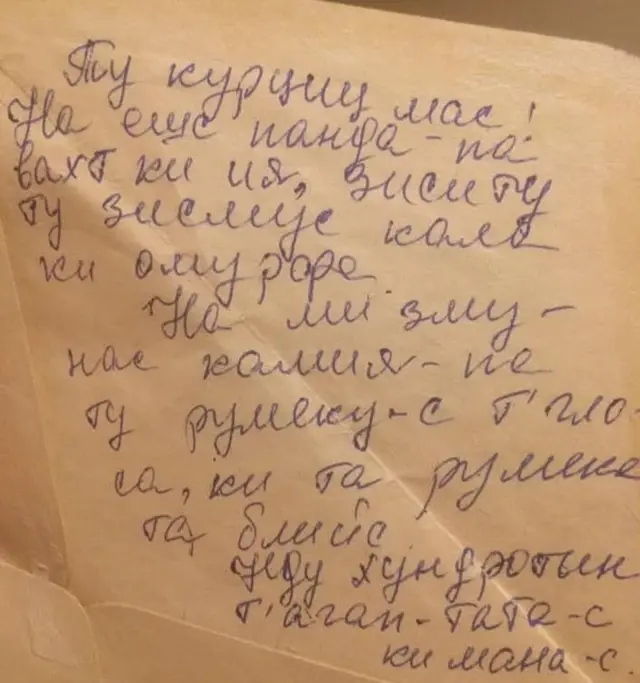 Ту курциц мас!
На ещс панда-па
вахт ки ия, зиситу
ту зислиус кала
ки омурфа.
На ми зму-
нас камия-па
ту румеку-с т'гло-
са, ки та румека
та блийс
Иду хундротын
т'агап-тата-с
ки мана-с.